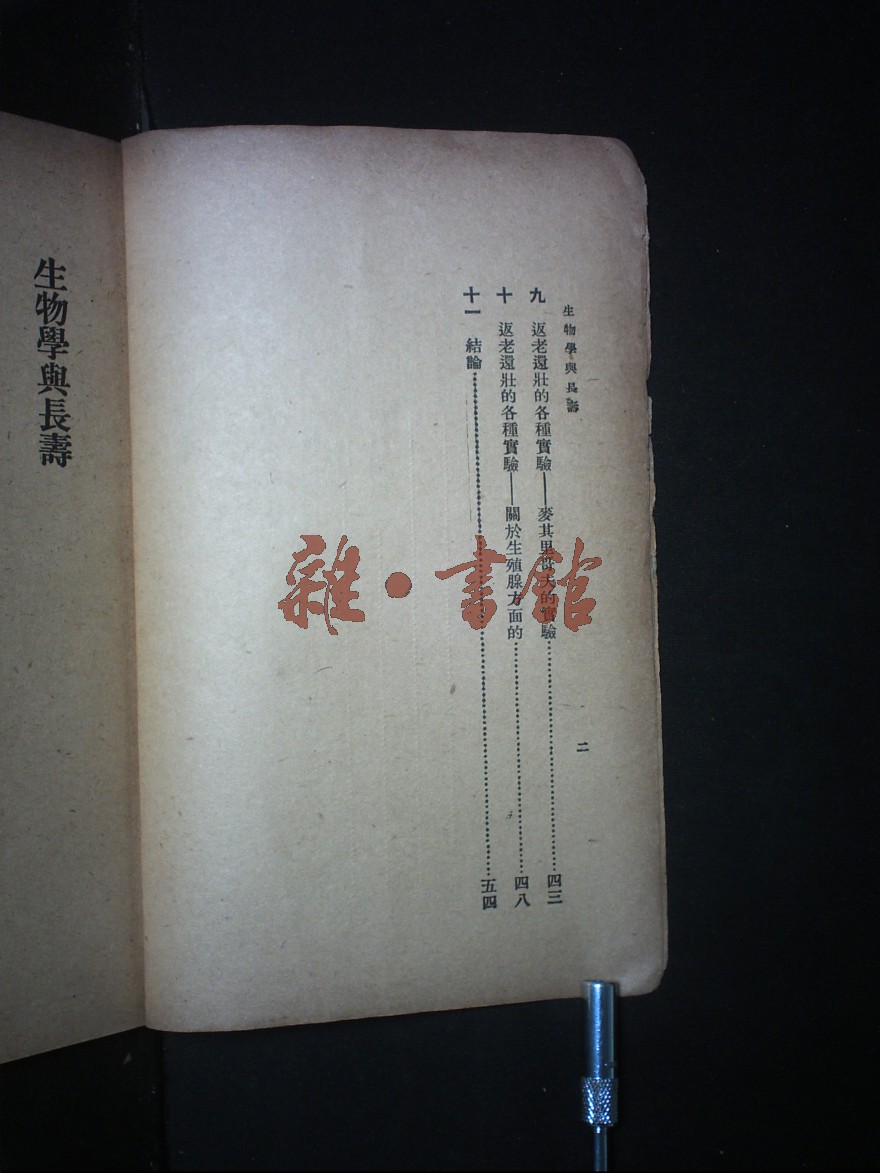 生物學與長壽
二
九 返老還壯的各種實驗——麥其里尼夫的實驗……四三
十 返老還壯的各種實驗——關於生殖腺方面的……四八
十一 結論……五四
生物學與長壽
雜·書館